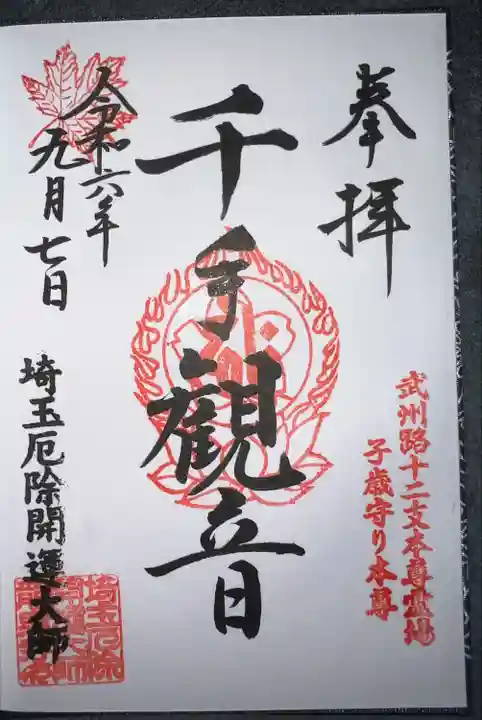 奉拝
武州路十二支本尊霊地
子歳守り本尊
千手観音
令和六年
九月七日
埼玉厄除開運大師